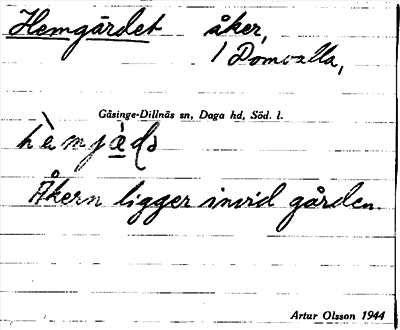 Hemgärdet åker,
1 Domvalla,
Gåsinge-Dillnäs sn, Daga hd, Söd. l.
Åkern ligger invid gården.
Artur Olsson 1944